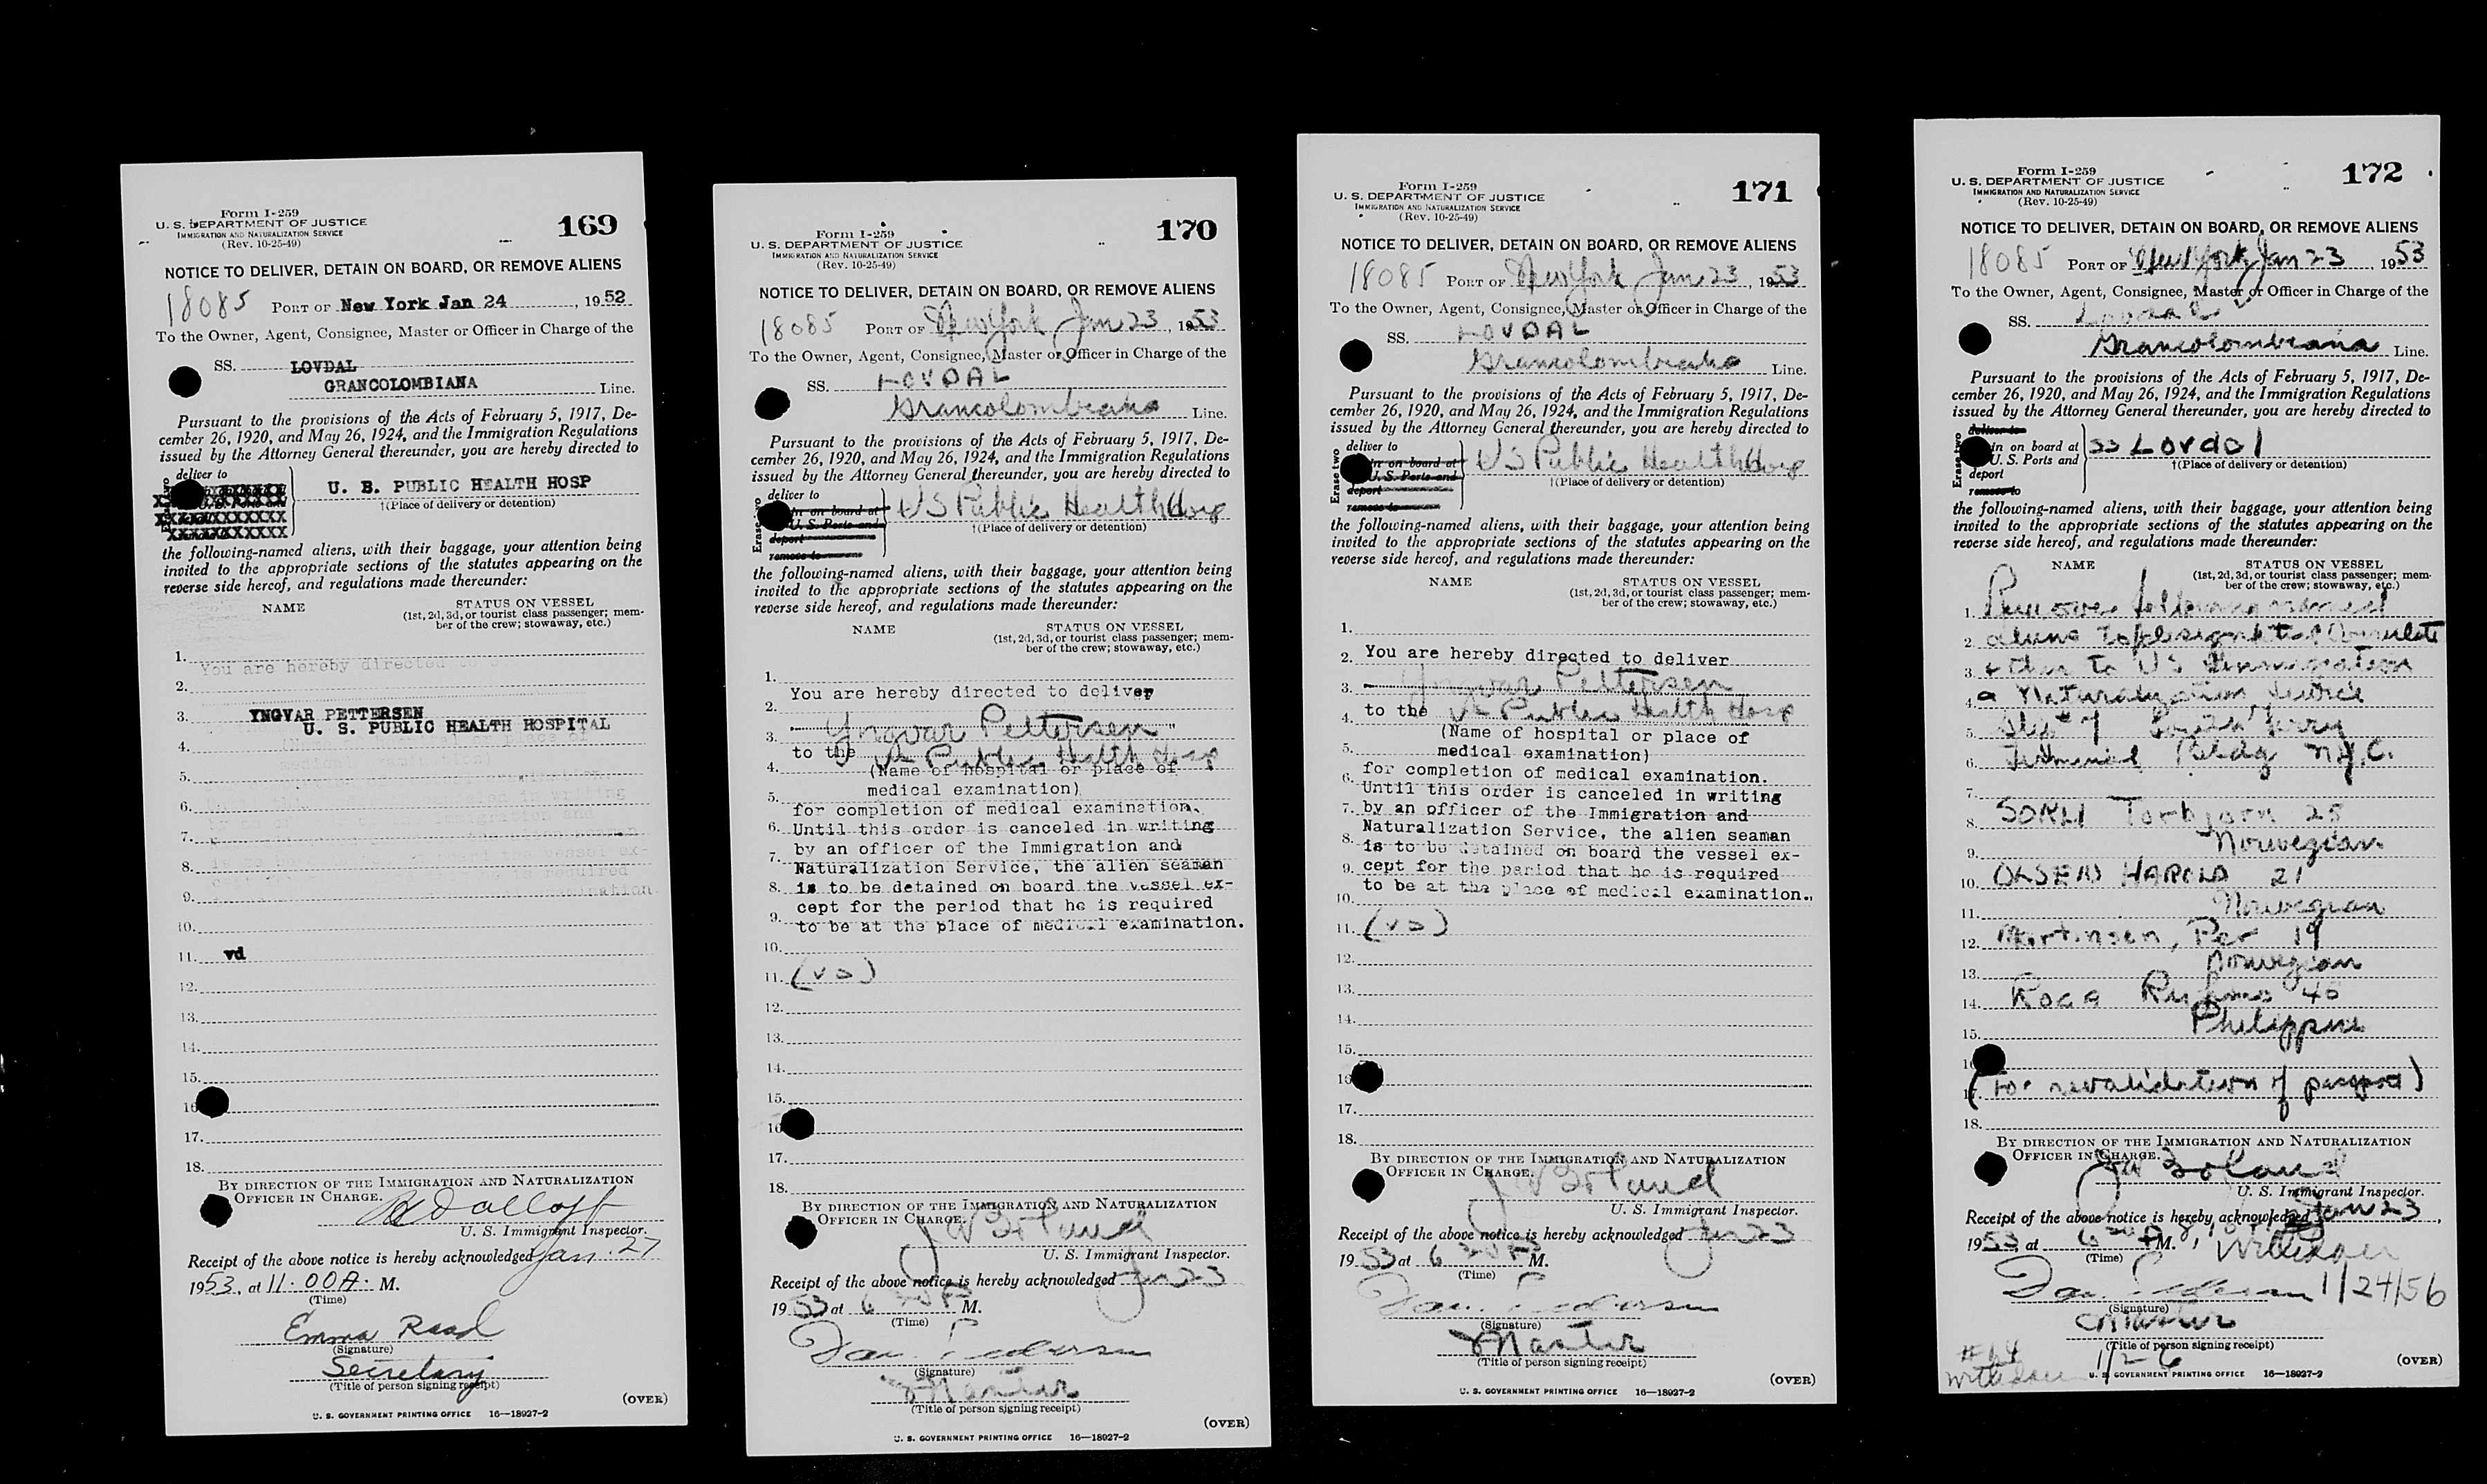 Form I-259
U. S. DEPARTMENT OF JUSTICE
IMMIGRATION AND NATURALIZATION SERVICE
(Rev. 10-25-49)
169
NOTICE TO DELIVER, DETAIN ON BOARD, OR REMOVE ALIENS
18085 PORT OF New York Jan 24, 1952
To the Owner, Agent, Consignee, Master or Officer in Charge of the
SS. LOVDAL
GRANCOLOMBIANA Line.
Pursuant to the provisions of the Acts of February 5, 1917, De-
cember 26, 1920, and May 26, 1924, and the Immigration Regulations
issued by the Attorney General thereunder, you are hereby directed to
deliver to
U. B. PUBLIC HEALTH HOSP
†(Place of delivery or detention)
the following-named aliens, with their baggage, your attention being
invited to the appropriate sections of the statutes appearing on the
reverse side hereof, and regulations made thereunder:
NAME STATUS ON VESSEL
(1st, 2d, 3d, or tourist class passenger; mem-
ber of the crew; stowaway, etc.)
1. You are hereby directed to
2.
3. YNGVAR PETTERSEN
U. S. PUBLIC HEALTH HOSPITAL
4.
5.
6.
7.
8.
9.
10.
11. vd
12.
13.
14.
15.
16
17.
18.
BY DIRECTION OF THE IMMIGRATION AND NATURALIZATION
OFFICER IN CHARGE.
U. S. Immigrant Inspector.
Receipt of the above notice is hereby acknowledged Jan. 27
1953, at 11:00 A. M.
(Time)
Emma Raad
(Signature)
Secretary
(Title of person signing receipt)
(OVER)
U. S. GOVERNMENT PRINTING OFFICE 16—18927-2
Form I-259
U. S. DEPARTMENT OF JUSTICE
IMMIGRATION AND NATURALIZATION SERVICE
(Rev. 10-25-49)
170
NOTICE TO DELIVER, DETAIN ON BOARD, OR REMOVE ALIENS
18085 PORT OF New York Jan 23, 1953
To the Owner, Agent, Consignee, Master or Officer in Charge of the
SS. LOVDAL
Grancolombiana Line.
Pursuant to the provisions of the Acts of February 5, 1917, De-
cember 26, 1920, and May 26, 1924, and the Immigration Regulations
issued by the Attorney General thereunder, you are hereby directed to
Erase two
deliver to
in on board at
U. S. Ports and
deport
remove to
US Public Health Hosp
†(Place of delivery or detention)
the following-named aliens, with their baggage, your attention being
invited to the appropriate sections of the statutes appearing on the
reverse side hereof, and regulations made thereunder:
NAME STATUS ON VESSEL
(1st, 2d, 3d, or tourist class passenger; mem-
ber of the crew; stowaway, etc.)
1.
You are hereby directed to deliver
2.
3. Yngvar Pettersen
to the US Public Health Hosp
4. (Name of hospital or place of
medical examination)
5.
for completion of medical examination.
6. Until this order is canceled in writing
by an officer of the Immigration and
7. Naturalization Service, the alien seaman
8. is to be detained on board the vessel ex-
cept for the period that he is required
9. to be at the place of medical examination.
10.
11. (VD)
12.
13.
14.
15.
16
17.
18.
BY DIRECTION OF THE IMMIGRATION AND NATURALIZATION
OFFICER IN CHARGE.
J W Boland
U. S. Immigrant Inspector.
Receipt of the above notice is hereby acknowledged Jan 23
1953 at 6 30 P M.
(Time)
(Signature)
Master
(Title of person signing receipt)
(OVER)
U. S. GOVERNMENT PRINTING OFFICE 16—18927-2
Form I-259
U. S. DEPARTMENT OF JUSTICE
IMMIGRATION AND NATURALIZATION SERVICE
(Rev. 10-25-49)
171
NOTICE TO DELIVER, DETAIN ON BOARD, OR REMOVE ALIENS
18085 PORT OF New York Jan 23, 1953
To the Owner, Agent, Consignee, Master or Officer in Charge of the
SS. LOVDAL
Grancolombiana Line.
Pursuant to the provisions of the Acts of February 5, 1917, De-
cember 26, 1920, and May 26, 1924, and the Immigration Regulations
issued by the Attorney General thereunder, you are hereby directed to
Erase two
deliver to
in on board at
U. S. Ports and
deport
remove to
US Public Health Hosp
†(Place of delivery or detention)
the following-named aliens, with their baggage, your attention being
invited to the appropriate sections of the statutes appearing on the
reverse side hereof, and regulations made thereunder:
NAME STATUS ON VESSEL
(1st, 2d, 3d, or tourist class passenger; mem-
ber of the crew; stowaway, etc.)
1.
2. You are hereby directed to deliver
3. Yngvar Pettersen
4. to the US Public Health Hosp
(Name of hospital or place of
5. medical examination)
6. for completion of medical examination.
Until this order is canceled in writing
7. by an officer of the Immigration and
8. Naturalization Service, the alien seaman
is to be detained on board the vessel ex-
9. cept for the period that he is required
10. to be at the place of medical examination.
11. (VD)
12.
13.
14.
15.
16
17.
18.
BY DIRECTION OF THE IMMIGRATION AND NATURALIZATION
OFFICER IN CHARGE.
J W Boland
U. S. Immigrant Inspector.
Receipt of the above notice is hereby acknowledged Jan 23
1953 at 6 30 P M.
(Time)
(Signature)
Master
(Title of person signing receipt)
(OVER)
U. S. GOVERNMENT PRINTING OFFICE 16—18927-2
Form I-259
U. S. DEPARTMENT OF JUSTICE
IMMIGRATION AND NATURALIZATION SERVICE
(Rev. 10-25-49)
172
NOTICE TO DELIVER, DETAIN ON BOARD, OR REMOVE ALIENS
18085 PORT OF New York Jan 23, 1953
To the Owner, Agent, Consignee, Master or Officer in Charge of the
SS. Lovdal
Grancolombiana Line.
Pursuant to the provisions of the Acts of February 5, 1917, De-
cember 26, 1920, and May 26, 1924, and the Immigration Regulations
issued by the Attorney General thereunder, you are hereby directed to
Erase two
deliver to
in on board at
U. S. Ports and
deport
remove to
SS Lovdal
†(Place of delivery or detention)
the following-named aliens, with their baggage, your attention being
invited to the appropriate sections of the statutes appearing on the
reverse side hereof, and regulations made thereunder:
NAME STATUS ON VESSEL
(1st, 2d, 3d, or tourist class passenger; mem-
ber of the crew; stowaway, etc.)
1. Remove following named
2. aliens to designated Consulate
3. & then to US Immigration
4. & Naturalization Service
5. Slip #7 South Ferry
6. Terminal Bldg N.Y.C.
7.
8. SORLI Torbjorn 25
9. Norwegian
10. OLSEN HAROLD 21
11. Norwegian
12. Mortinsen, Per 19
13. Norwegian
14. Roaa 40
15. Philippine
16
17. (for revalidation of passport)
18.
BY DIRECTION OF THE IMMIGRATION AND NATURALIZATION
OFFICER IN CHARGE.
J W Boland
U. S. Immigrant Inspector.
Receipt of the above notice is hereby acknowledged Jan 23,
1953, at 6 30 P M.
(Time)
1/24/56
(Signature)
Master
(Title of person signing receipt)
#64
1/26
(OVER)
U. S. GOVERNMENT PRINTING OFFICE 16—18927-2